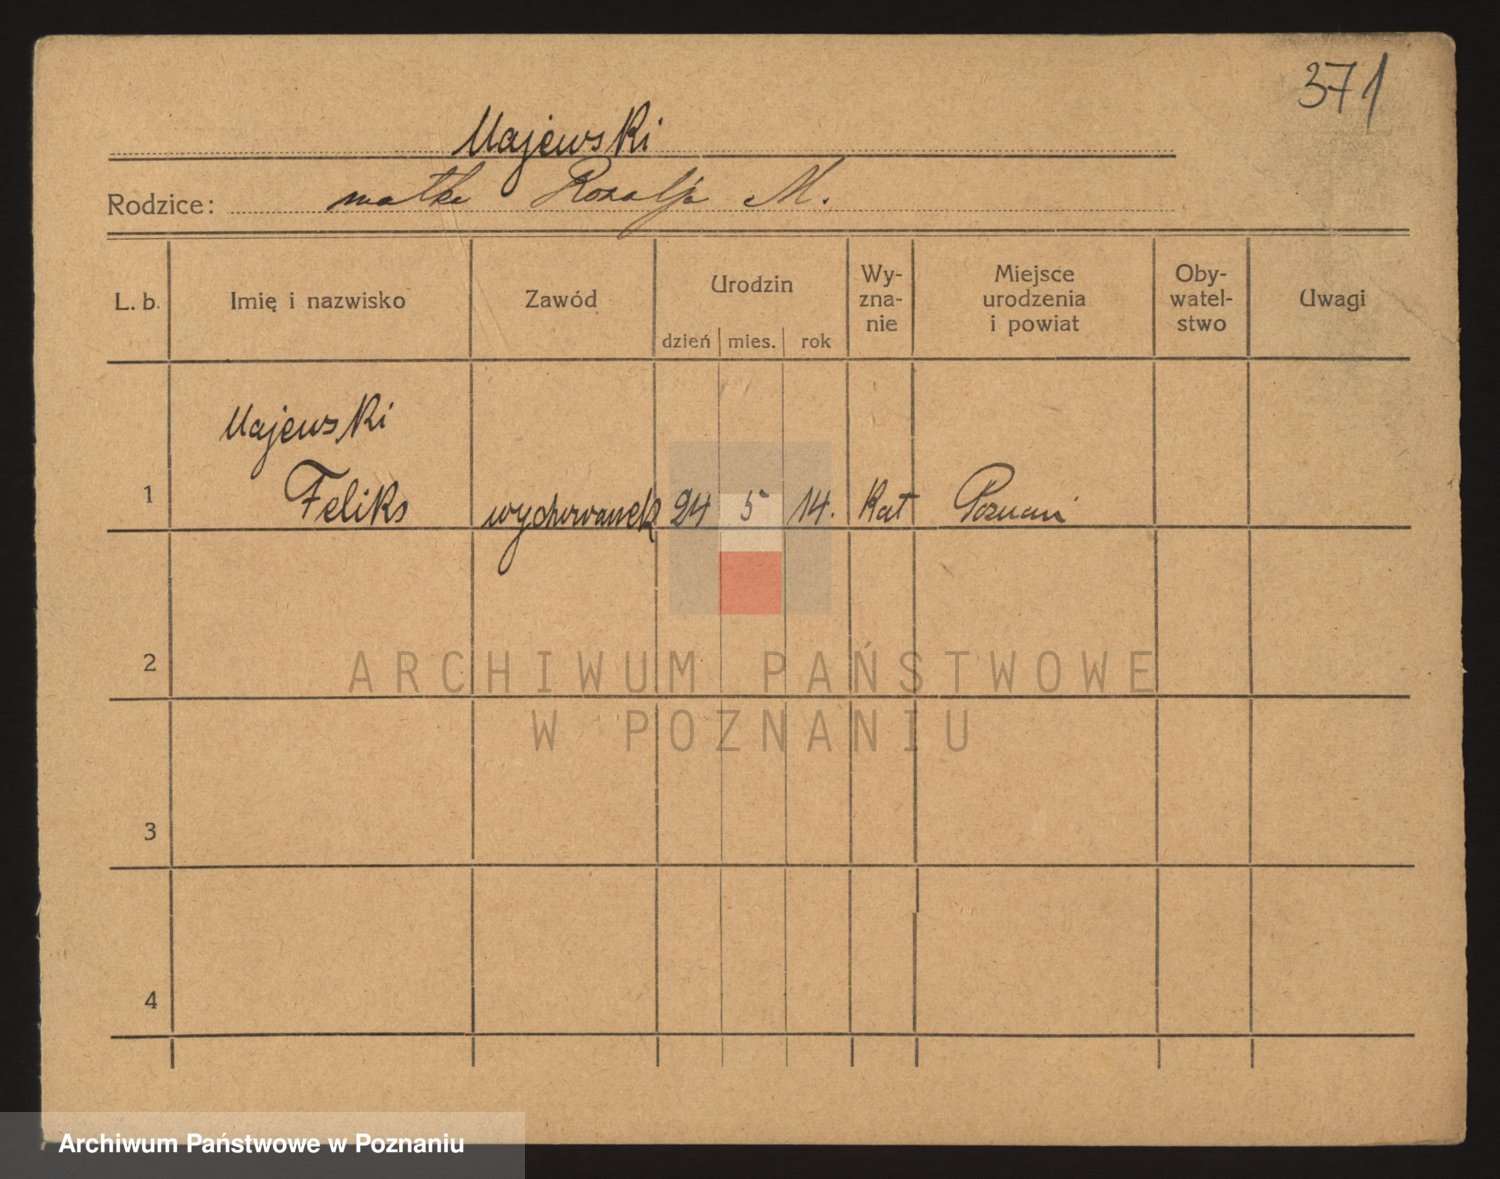 371
Majewski
Rodzice: matka Rozalja M.
L. b. Imię i nazwisko Zawód Urodzin dzień mies. rok Wy-zna-nie Miejsce urodzenia i powiat Oby-watel-stwo Uwagi
Majewski
1 Feliks wychowanek 24 5 14. Kat Poznań
2
ARCHIWUM PAŃSTWOWE
W POZNANIU
3
4
Archiwum Państwowe w Poznaniu